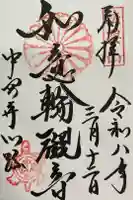 奉拝
令和八年
三月十二日
如意輪観音
中宮寺門跡